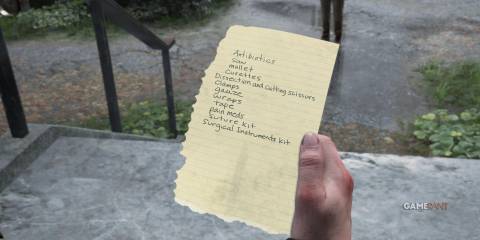 Antibiotics
saw
mallet
curettes
Dissection and cutting scissors
clamps
gauze
wraps
tape
pain meds
suture kit
Surgical Instruments kit
GAMERANT